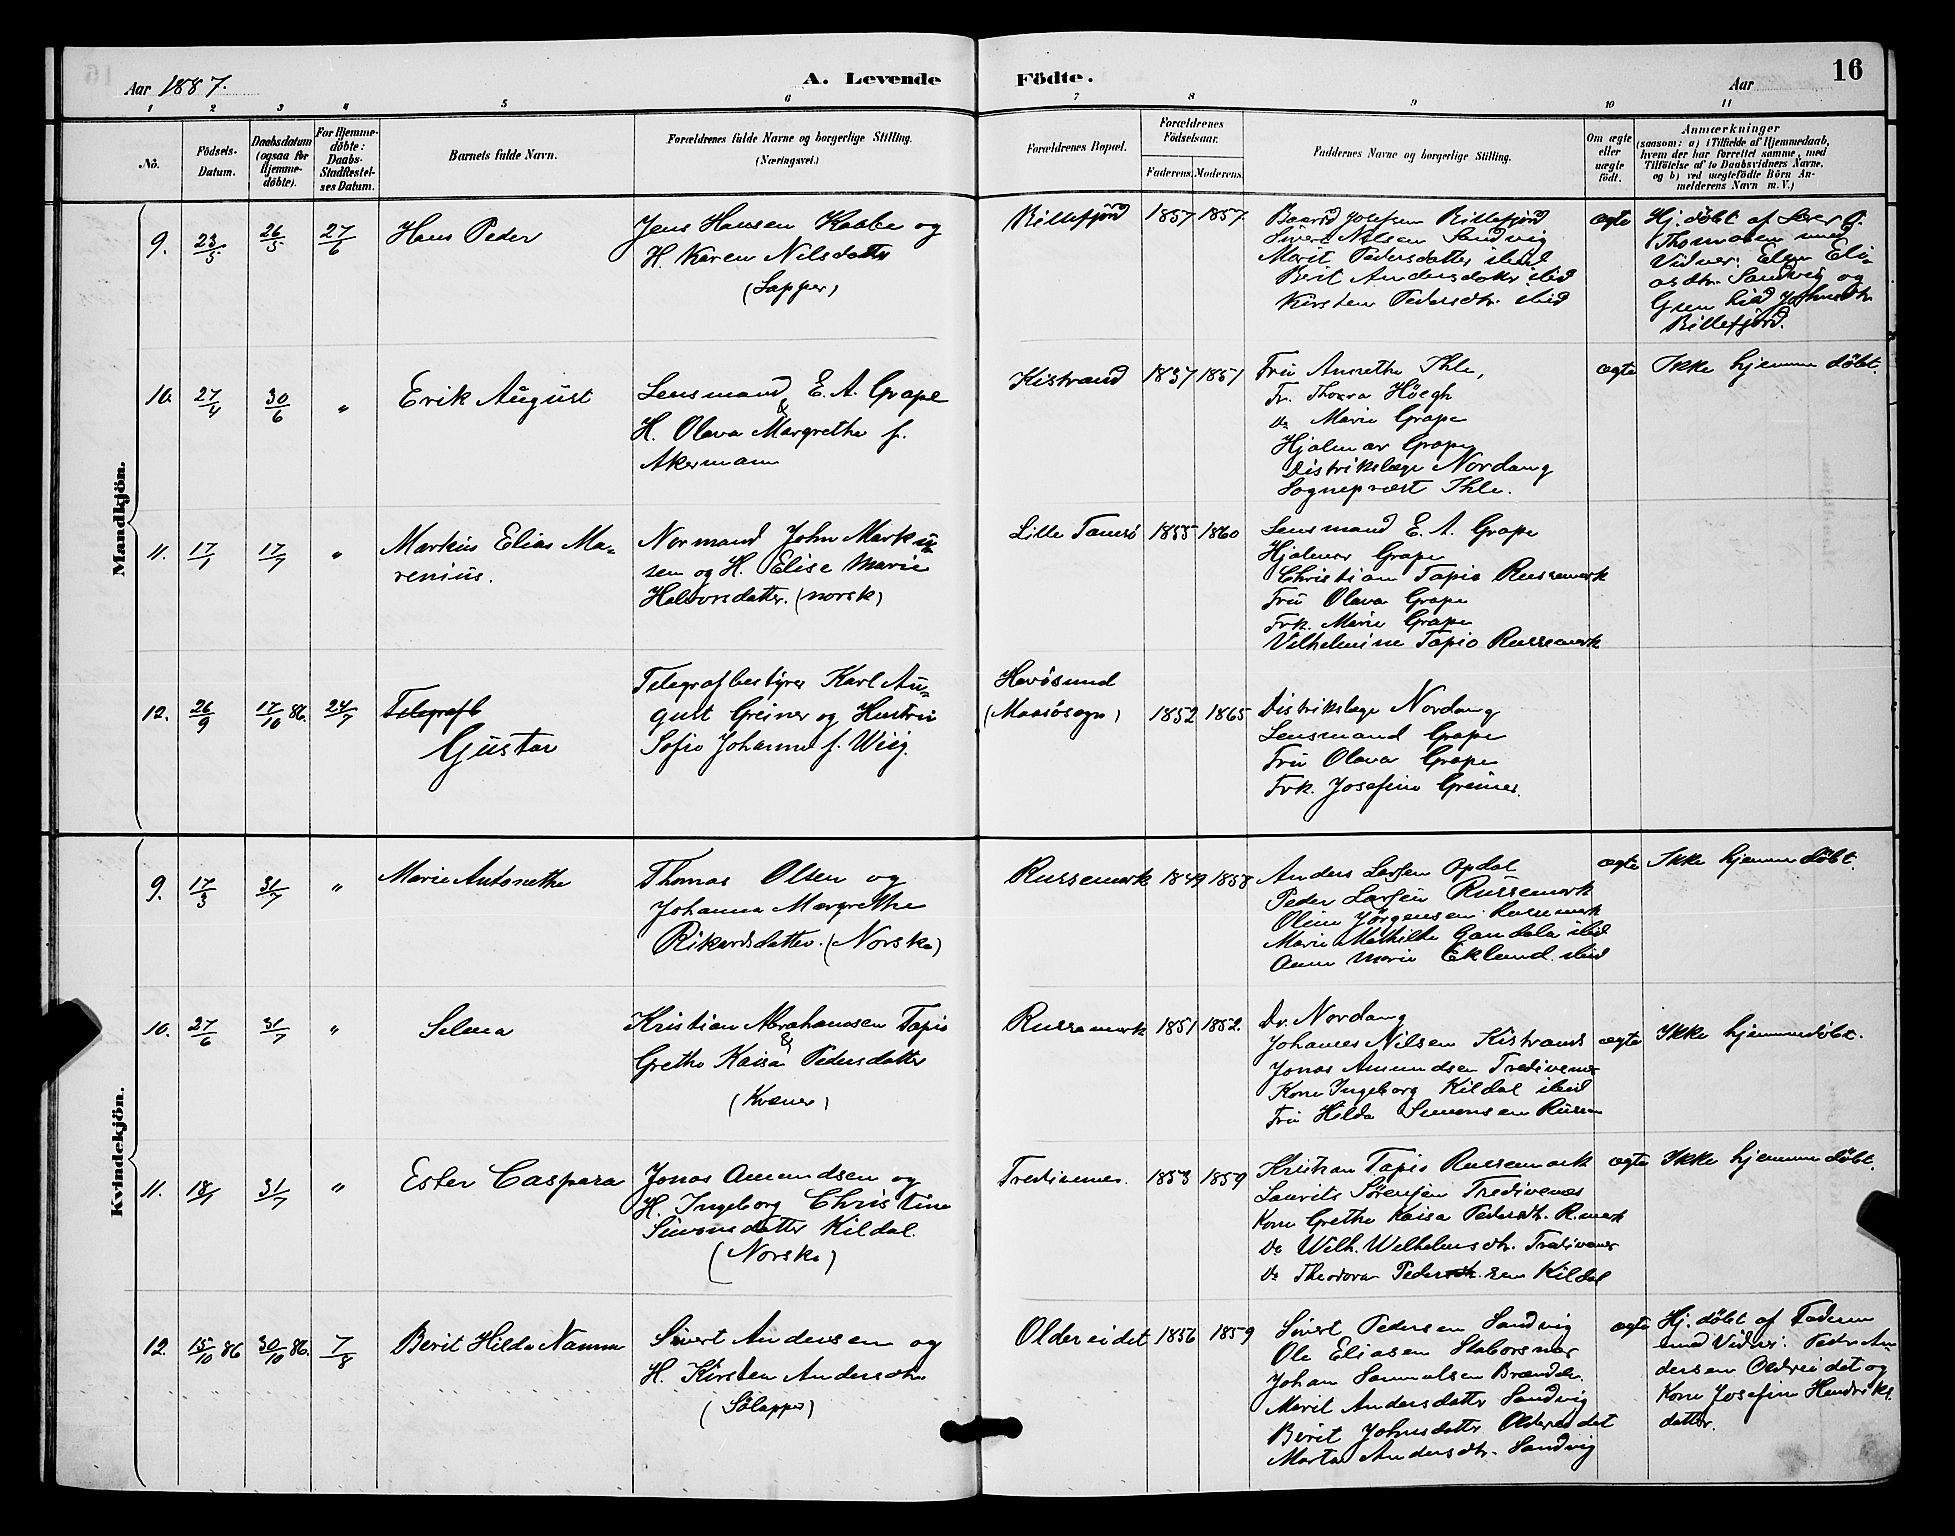 Aar 1887.
A. Levende
Födte.
Aar
16
1 2 3 4 5 6 7 8 9 10 11
No.
Födsels-
Datum.
Daabsdatum
(ogsaa for
Hjemme-
döbte).
For Hjemme-
döbte:
Daabs-
Stadfestel-
ses Datum.
Barnets fulde Navn.
Forældrenes fulde Navne og borgerlige Stilling.
(Næringsvei.)
Forældrenes Bopæl.
Forældrenes
Födselsaar.
Faderens. Moderens.
Faddernes Navne og borgerlige Stilling.
Om ægte
eller
uægte
födt.
Anmærkninger
(saasom: a) i Tilfælde af Hjemmedaab,
hvem der har forrettet samme, med
Tilföielse af to Daabsvidners Navne,
og b) ved uægtefödte Börn An-
melderens Navn m. V.)
Mandkjön.
9.
23/5
26/5
27/6
Hans Peder
Jens Hansen Kaabe og
H. Karen Nilsdatter
(Lapper)
Billefjord
1857
1857
Baard Josefsen Billefjord
Sivert Nilsen Sandvig
Marit Pedersdatter ibid
Berit Andersdatter ibid
Kirsten Pedersdtr. ibid
ægte
Hj. döbt af
Thomasen med
Vidner: Elen Eli-
asdtr. Sandvig og
Billefjord.
10.
27/4
30/6
"
Erik August
Lensmand E. A. Grape
&
H. Olava Margrethe f.
Akermann
Kistrand
1837
1851
Fru Annethe Ihle,
Fr. Thora Höegh
Do Marie Grape
Hjalmar Grape
Distriktslæge Nordang
Sogneprest Ihle.
ægte
Ikke hjemmedöbt.
11.
17/1
17/7
"
Markus Elias Ma-
renius.
Normand John Marku-
sen og H. Elise Marie
Halvorsdatter. (norsk)
Lille Tamsö
1855
1860
Lensmand E. A. Grape
Hjalmar Grape
Christian Tapio Russemark
Fru Olava Grape
Frk. Marie Grape
Vilhelmine Tapio Russemark
12.
26/9
17/10 86.
24/7
Telegrafb
Gustav
Telegrafbestyrer Karl Au-
gust Greiner og Hustru
Sofie Johanne f. Wiig.
Havösund
(Maasösogn)
1852
1865
Distriktslæge Nordang
Lensmand Grape
Fru Olava Grape
Frk. Josefine Greiner.
Kvindekjön.
9.
17/3
31/7
"
Marie Antonette
Thomas Olsen og
Johanna Margrethe
Rikardsdatter. (Norske)
Russemark
1849
1858
Anders Larsen Opdal
Peder Larsen Russemark
Oline Jörgensen Russemark
Marie Mathilde Gandala ibid
Anne Marie Eklund. ibid
ægte
Ikke hjemmedöbt.
10.
27/6
31/7
"
Selma
Kristian Abrahamsen Tapio
&
Grethe Kaisa Pedersdatter
(Kvæner)
Russemark
1851
1852.
Dr. Nordang
Johannes Nilsen Kistrand
Jonas Amundsen Tredivenes
Kone Ingeborg Kildal ibid
Fru Hilda Simonsen Russem
ægte
Ikke hjemmedöbt.
11.
18/1
31/7
"
Ester Caspara
Jonas Amundsen og
H. Ingeborg Christine
Simonsdatter Kildal.
(Norske)
Tredivenes.
1853
1859
Kristian Tapio Russemark
Laurits Sörensen Tredivenes
Kone Grethe Kaisa Pedersdtr. R.mark
Do Wilh. Wilhelmsdtr. Tredivenes
Do Theodora Pedersdtr. sen Kildal
ægte
Ikke hjemmedöbt.
12.
15/10 86
30/10 86.
7/8
Berit Hilda Nanna
Sivert Andersen og
H. Kirsten Andersdtr.
(Sölapper)
Oldereidet
1856
1859
Sivert Pedersen Sandvig
Ole Eliasen Staborsnes
Johan Samuelsen Brænd
Marit Andersdatter Sandvig
Berit Johnsdatter Oldereidet
Marta Andersdtr. Sandvig
ægte
Hj. döbt af Faderen
med Vidner: Peder An-
dersen Oldereidet og
Kone Josefine Hendriks
datter.